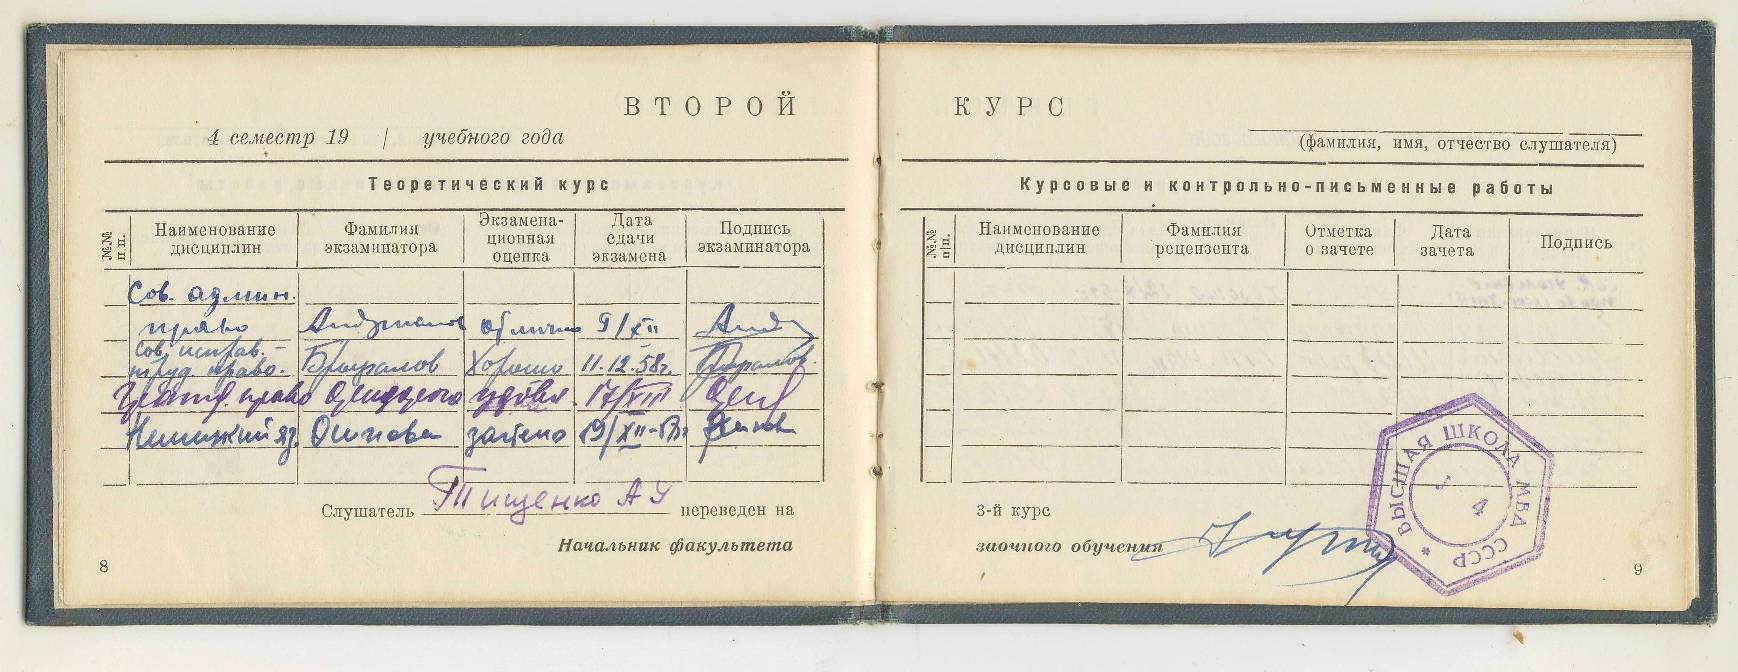 ВТОРОЙ КУРС
4 семестр 19 / учебного года
(фамилия, имя, отчество слушателя)
Теоретический курс
Курсовые и контрольно-письменные работы
№№ п.п. Наименование дисциплин Фамилия экзаменатора Экзамена-ционная оценка Дата сдачи экзамена Подпись экзаменатора
№№ п/п. Наименование дисциплин Фамилия рецензента Отметка о зачете Дата зачета Подпись
Сов. админ.
право отлично 9/XII
Сов. исправ.-
труд. право. Хорошо 11.12.58г.
право удовл.
Немецкий яз. Осипова зачтено
Слушатель Тищенко А У переведен на
3-й курс
Начальник факультета
заочного обучения
ВЫСШАЯ ШКОЛА МВД СССР *
4
8
9